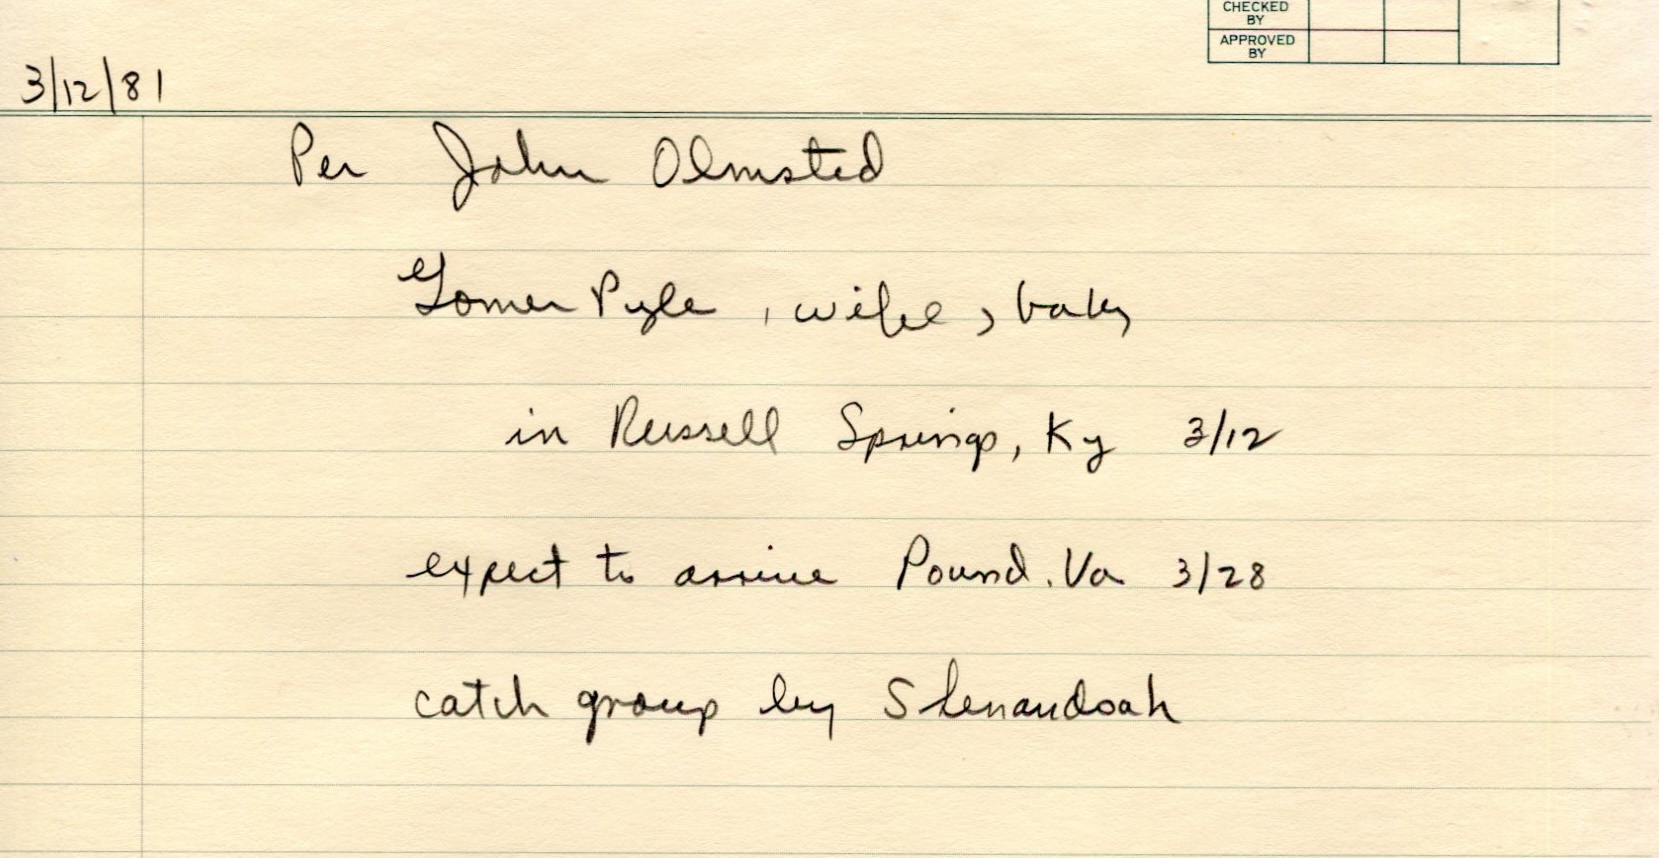 CHECKED
BY
APPROVED
BY
3/12/81
Per John Olmsted
Gomer Pyle, wife, baby
in Russell Springs, Ky 3/12
expect to arrive Pound, Va 3/28
catch group by Shenandoah